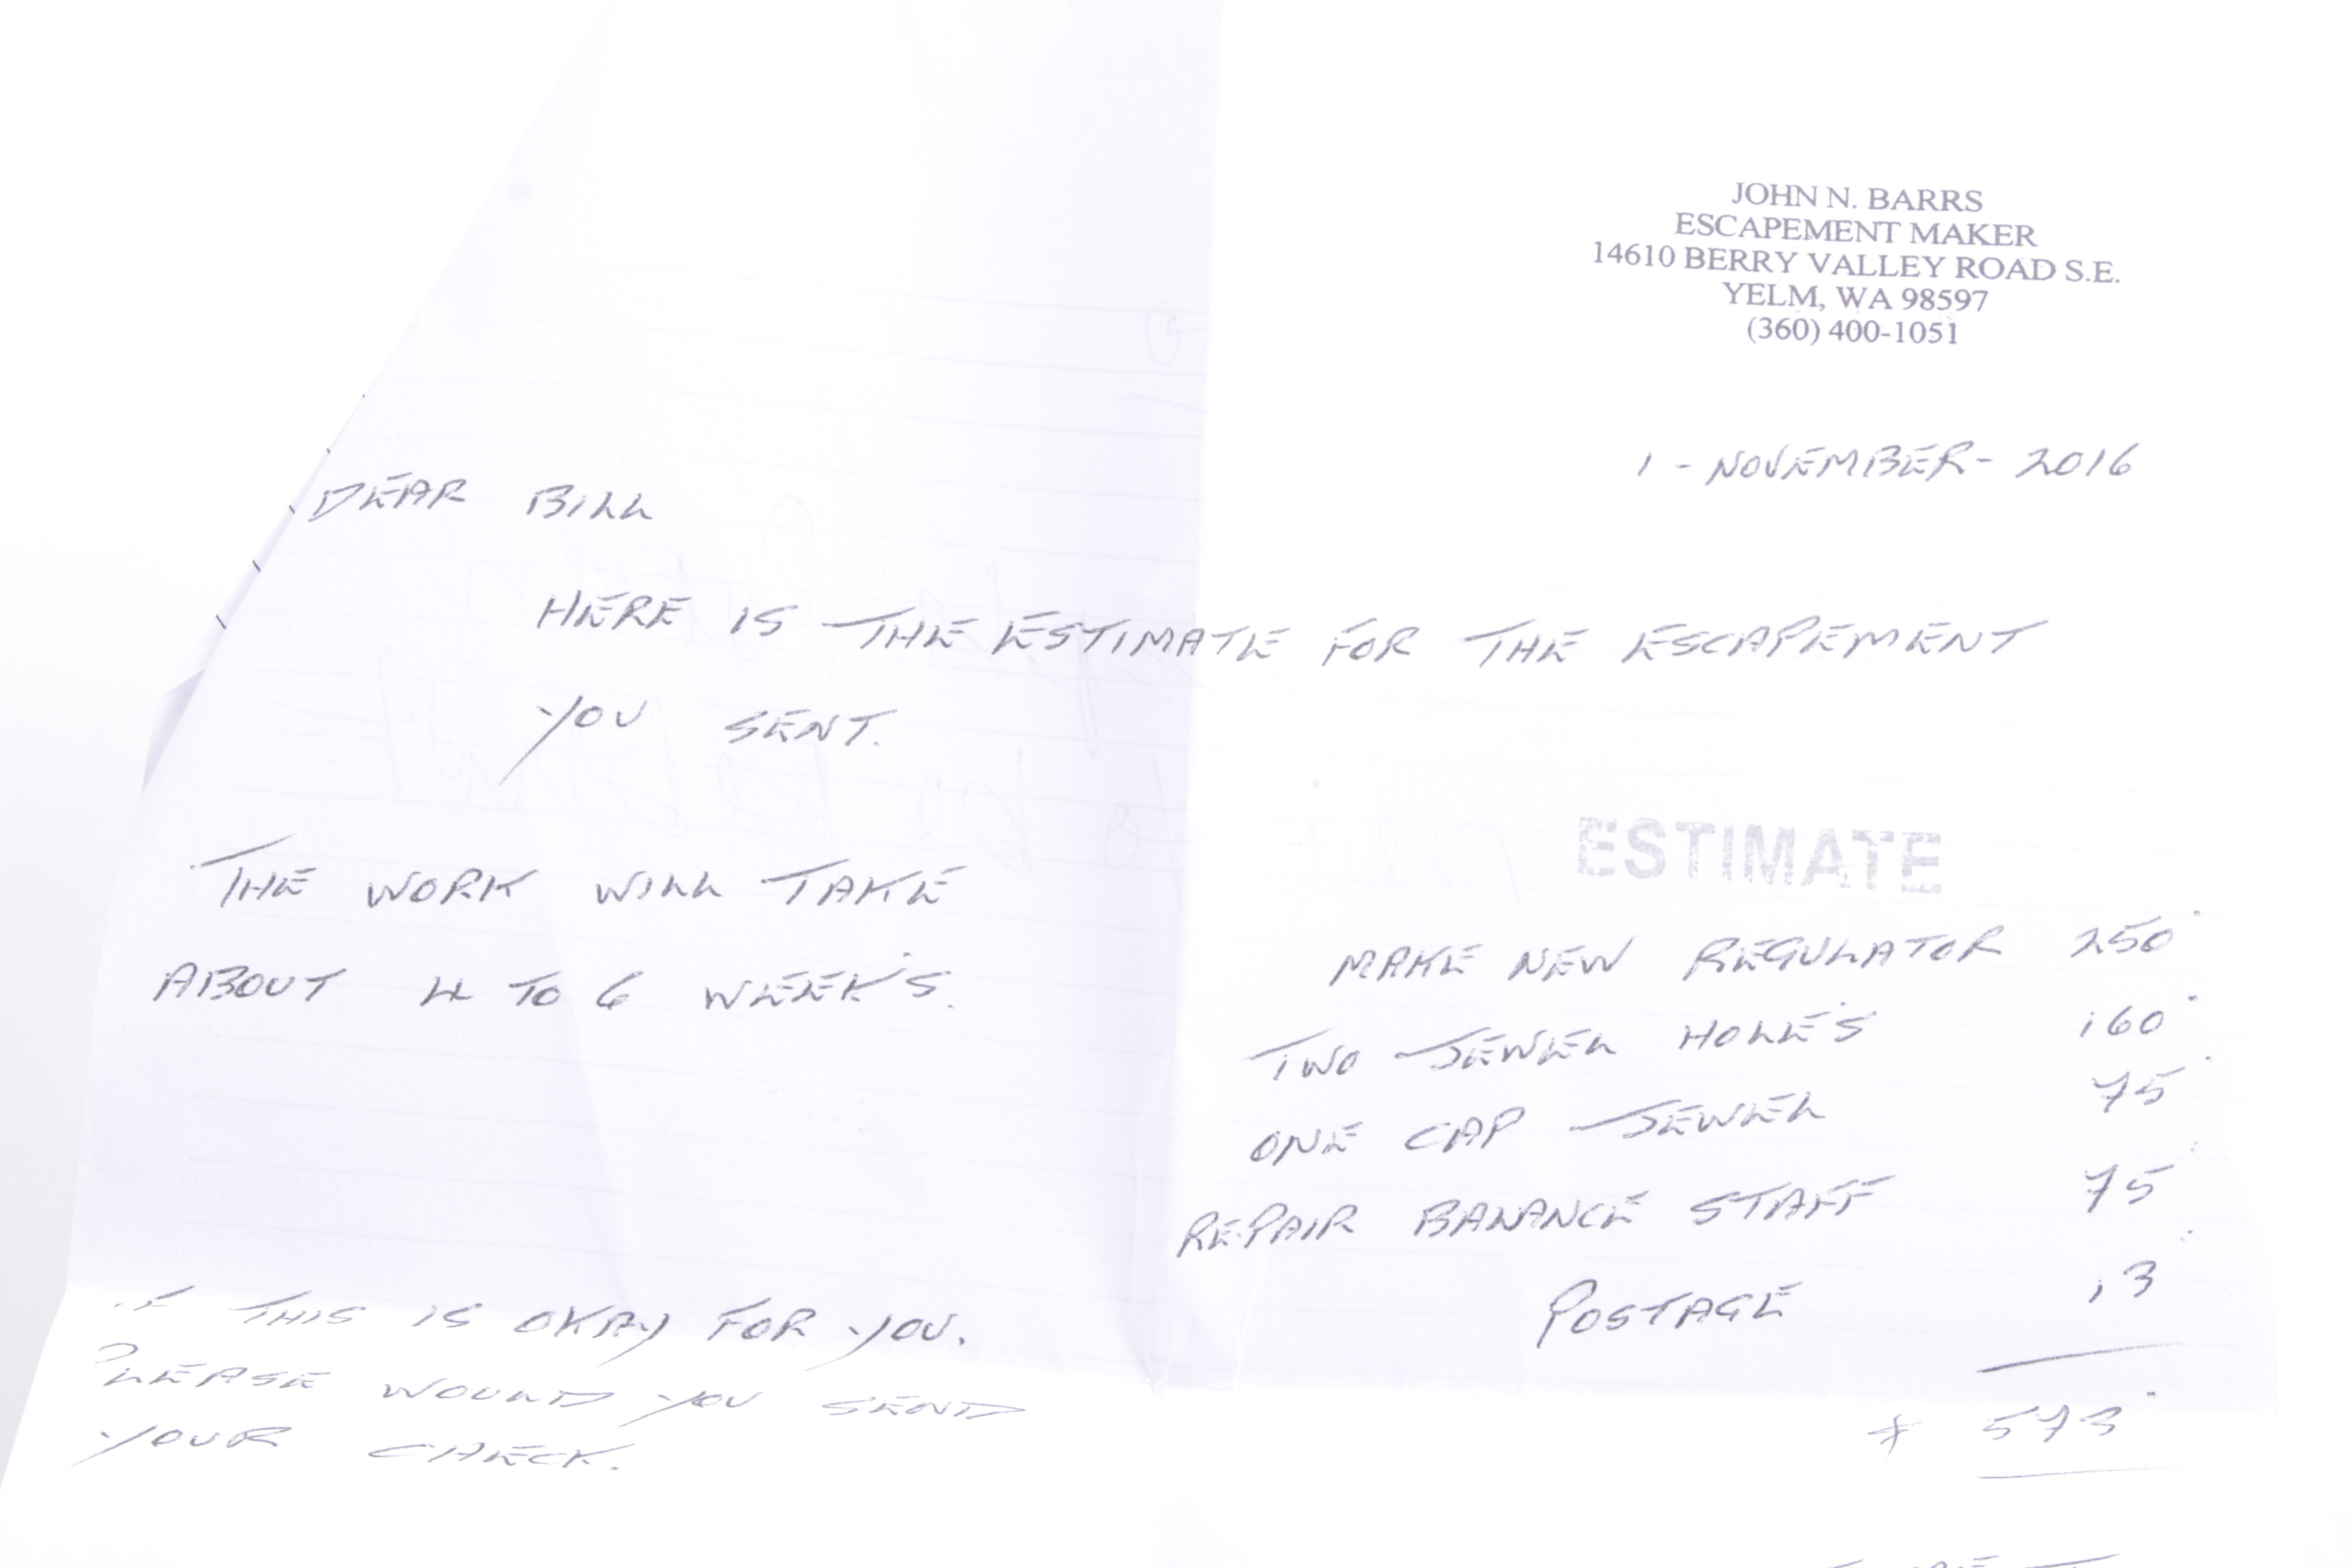 JOHN N. BARRS
ESCAPEMENT MAKER
14610 BERRY VALLEY ROAD S.E.
YELM, WA 98597
(360) 400-1051
1 - NOVEMBER - 2016
DEAR BILL
HERE IS THE ESTIMATE FOR THE ESCAPEMENT
YOU SENT.
THE WORK WILL TAKE
ABOUT 4 TO 6 WEEK'S.
ESTIMATE
MAKE NEW REGULATOR 250
TWO JEWEL HOLE'S 160
ONE CAP JEWEL 75
REPAIR BALANCE STAFF 75
POSTAGE 13
$ 573
IF THIS IS OKAY FOR YOU.
PLEASE WOULD YOU SEND
YOUR CHECK.